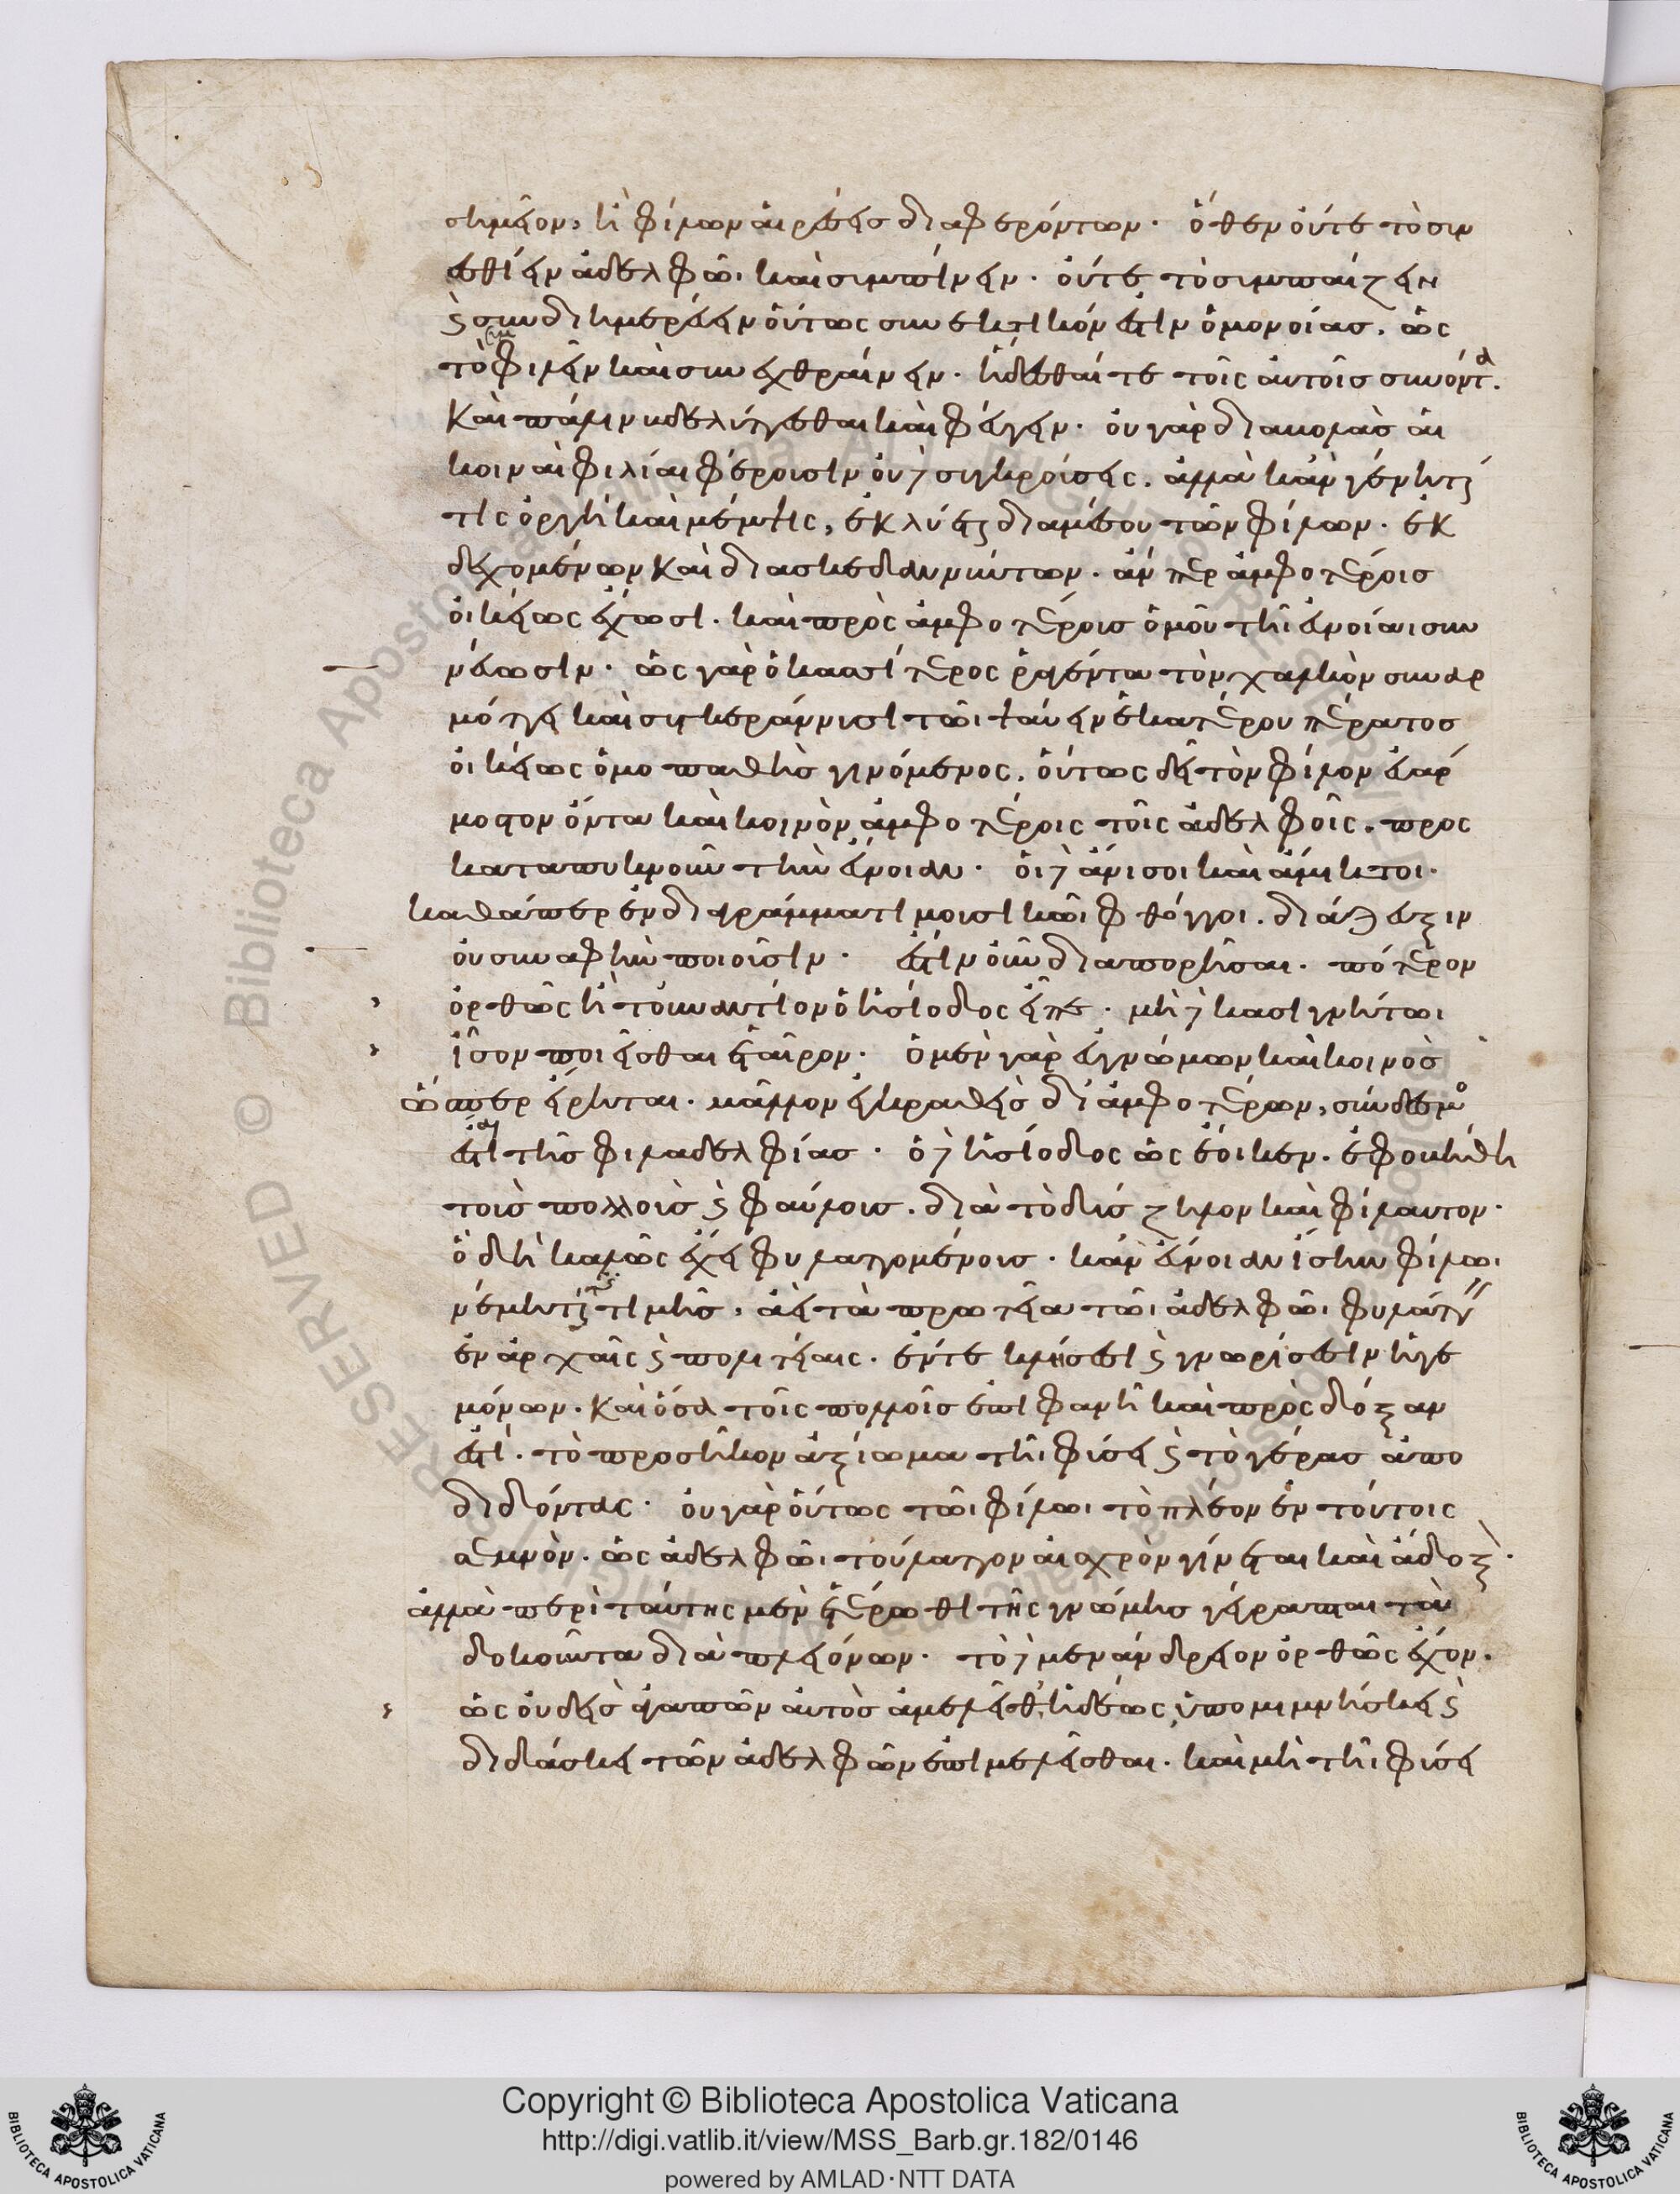 σημεῖον, ἢ φίλων αἱρέσεις διαφερόντων. ὅθεν οὔτε τὸ συν
εσθίειν ἀδελφῶι καὶ συμπίνειν. οὔτε τὸ συμπαίζειν
καὶ συνδιημερεύειν οὕτως συνεκτικόν ἐστιν ὁμονοίας. ὡς
τὸ συμφιλεῖν καὶ συνεχθραίνειν. ἥδεσθαί τε τοῖς αὐτοῖς συνόντας.
καὶ πάλιν βδελύττεσθαι καὶ φεύγειν. οὐ γὰρ διαβολὰς αἱ
κοιναὶ φιλίαι φέρουσιν οὐδὲ συγκρούσεις. ἀλλὰ κἂν γένηται
τὶς ὀργὴ καὶ μέμψις, ἐκλύεται διαμέσου τῶν φίλων. ἐκ
δεχομένων καὶ διασκεδαννύντων. ἄνπερ ἀμφοτέροις
οἰκείως ἔχωσι. καὶ πρὸς ἀμφοτέρους ὁμοῦ τῆι εὐνοίαι συν
νεύωσιν. ὡς γὰρ ὁ κασσίτερος ῥαγέντα τὸν χαλκὸν συναρ
μόττει καὶ συγκεράννυσι τῶι ψαύειν ἑκατέρου πέρατος
οἰκείως ὁμοπαθὴς γινόμενος. οὕτως δεῖ τὸν φίλον εὐάρ
μοστον ὄντα καὶ κοινὸν ἀμφοτέροις τοῖς ἀδελφοῖς. προς
καταπυκνοῦν τὴν εὔνοιαν. οἱ δὲ ἄνισοι καὶ ἄμικτοι.
καθάπερ ἐν διαγράμματι μουσικῶι φθόγγοι. διάζευξιν
οὐ συναφὴν ποιοῦσιν. ἔστιν οὖν διαπορῆσαι. πότερον
ὀρθῶς ἢ τοὐναντίον ὁ ἡσίοδος εἶπε. μὴ δὲ κασιγνήτωι
ἶσον ποιεῖσθαι ἑταῖρον. ὁ μὲν γὰρ εὐγνώμων καὶ κοινὸς
ὥσπερ εἴρηται. μᾶλλον ἐγκραθεὶς δι' ἀμφοτέρων, σύνδεσμος
ἔσται τῆς φιλαδελφίας. ὁ δὲ ἡσίοδος ὡς ἔοικεν. ἐφοβήθη
τοὺς πολλοὺς καὶ φαύλους. διὰ τὸ δύσζηλον καὶ φίλαυτον.
ὃ δὴ καλῶς ἔχει φυλαττομένους. κἂν εὔνοιαν ἴσην φίλωι
νέμηταί τις μὴ. ἀεὶ τὰ πρωτεῖα τῶι ἀδελφῶι φυλάττειν
ἐν ἀρχαῖς καὶ πολιτείαις. ἔν τε κλήσεσι καὶ γνωρίσεσιν ἡγε
μόνων. καὶ ὅσα τοῖς πολλοῖς ἐπιφανῆ καὶ πρὸς δόξαν
ἐστί. τὸ προσῆκον ἀξίωμα τῆι φύσει καὶ τὸ γέρας ἀπο
διδόντας. οὐ γὰρ οὕτως τῶι φίλωι τὸ πλέον ἐν τούτοις
σεμνὸν. ὡς ἀδελφῶι τοὔλαττον αἰσχρὸν γίνεται καὶ ἄδοξον.
ἀλλὰ περὶ ταύτης μὲν ἑτέρωθι τῆς γνώμης γέγραπται τὰ
δοκοῦντα διὰ πλειόνων. τὸ δὲ μενάνδρειον ὀρθῶς ἔχον.
ὡς οὐδεὶς ἀγαπῶν αὐτὸς ἀμελεῖσθ' ἡδέως, ὑπομιμνήσκει καὶ
διδάσκει τῶν ἀδελφῶν ἐπιμελεῖσθαι. καὶ μὴ τῆι φύσει
Copyright © Biblioteca Apostolica Vaticana
http://digi.vatlib.it/view/MSS_Barb.gr.182/0146
powered by AMLAD·NTT DATA